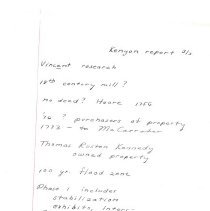 Kenyon report 2/2
Vincent research
18th century mill?
no deed? Hoare 1756
'76 ? purchasers of property
1773 – to McCarruter
Thomas Ruston Kennedy
owned property
100 yr flood zone
Phase 1 includes
stabilization
exhibits,